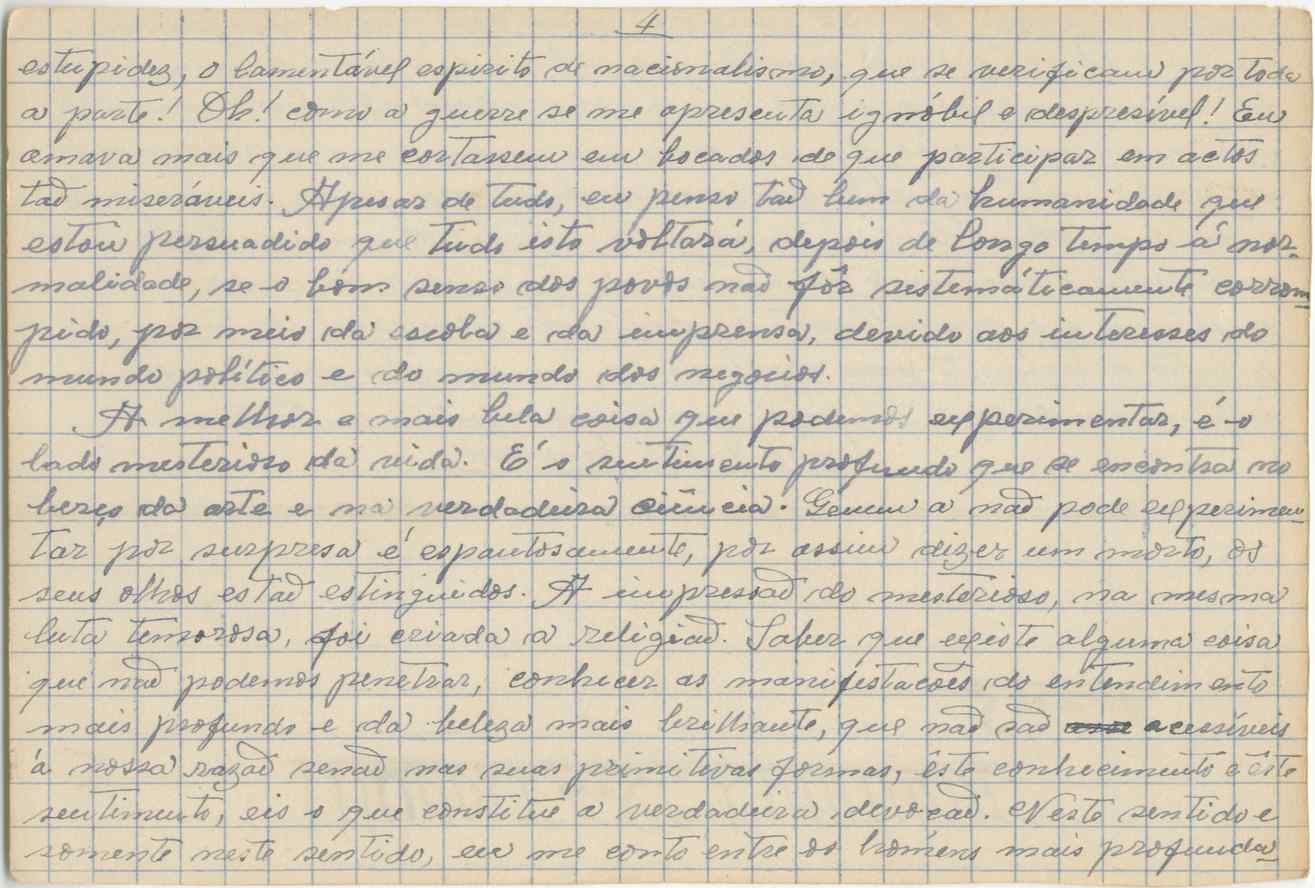 4
estupidez, o lamentável espirito de nacionalismo, que se verificam por toda
a parte! Oh! como a guerra se me apresenta ignóbil e despresível! Eu
amava mais que me cortassem em bocados de que participar em actos
tão miseráveis. Apesar de tudo, eu penso tão bem da humanidade que
estou persuadido que tudo isto voltará, depois de longo tempo á nor-
malidade, se o bom senso dos povos não fôr sistemáticamente corrom
pido, por meio da escola e da imprensa, devido aos interesses do
mundo político e do mundo dos negócios.
A melhor e mais bela coisa que podemos experimentar, é o
lado mesterioso da vida. É o sentimento profundo que se encontra no
berço da arte e na verdadeira ciência. Quem a não pode experimen
tar por surpresa é espantosamente, por assim dizer um morto, os
seus olhos estão estinguidos. A impressão do mesterioso, na mesma
luta temorosa, foi criada a religião. Saber que existe alguma coisa
que não podemos penetrar, conhecer as manifestações do entendimento
mais profundo e da beleza mais brilhante, que não são acessíveis
á nossa razão senão nas suas primitivas formas, êste conhecimento e êste
sentimento, eis o que constitue a verdadeira devoção. Neste sentido e
somente neste sentido, eu me conto entre os homens mais profunda